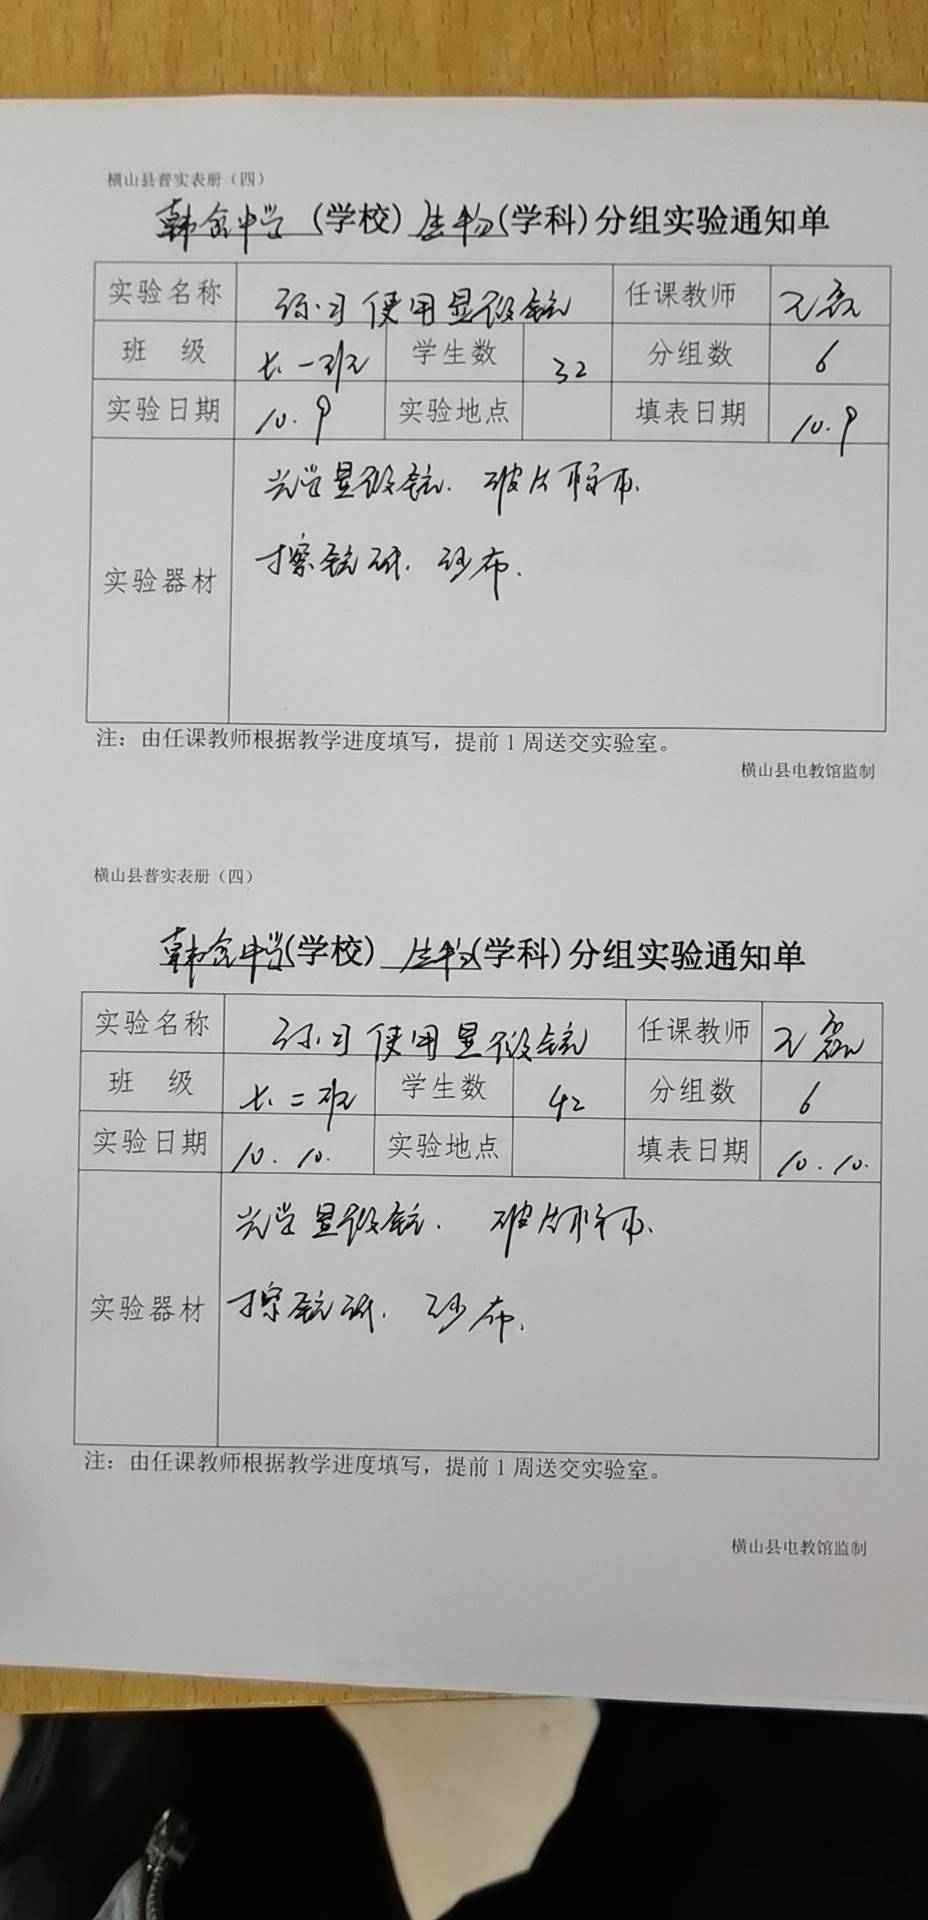 横山县普实表册（四）
韩岔中学（学校）生物（学科）分组实验通知单
实验名称 练习使用显微镜 任课教师 王磊
班 级 七.一班 学生数 32 分组数 6
实验日期 10.9 实验地点 填表日期 10.9
光学显微镜. 玻片标本.
实验器材 擦镜纸. 纱布.
注：由任课教师根据教学进度填写，提前1周送交实验室。
横山县电教馆监制
横山县普实表册（四）
韩岔中学（学校）生物（学科）分组实验通知单
实验名称 练习使用显微镜 任课教师 王磊
班 级 七.二班 学生数 42 分组数 6
实验日期 10.10. 实验地点 填表日期 10.10.
光学显微镜. 玻片标本.
实验器材 擦镜纸. 纱布.
注：由任课教师根据教学进度填写，提前1周送交实验室。
横山县电教馆监制